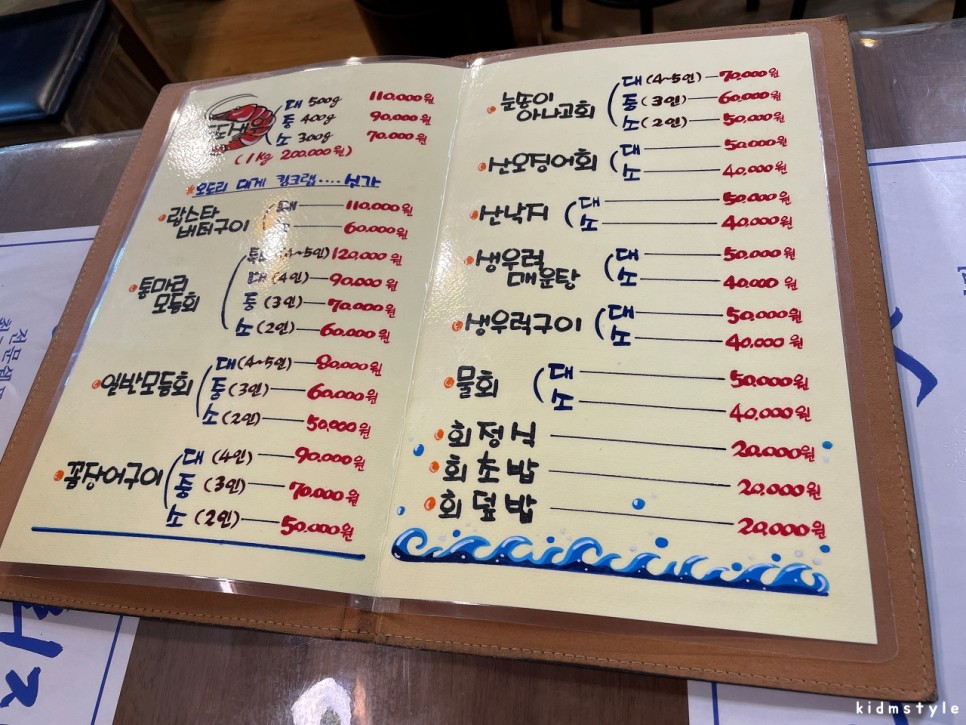 도새우
대 500g 110,000원
중 400g 90,000원
소 300g 70,000원
(1kg 200,000원)
*오도리 대게 킹크랩....싯가
랍스타
버터구이
대 110,000원
60,000원
통마리
모듬회
(4~5인) 120,000원
대 (4인) 90,000원
중 (3인) 70,000원
소 (2인) 60,000원
일반모듬회
대 (4~5인) 80,000원
중 (3인) 60,000원
소 (2인) 50,000원
꼼장어구이
대 (4인) 90,000원
중 (3인) 70,000원
소 (2인) 50,000원
눈송이
아나고회
대 (4~5인) 70,000원
중 (3인) 60,000원
소 (2인) 50,000원
산오징어회
대 50,000원
소 40,000원
산낙지
대 50,000원
소 40,000원
생우럭
매운탕
대 50,000원
소 40,000원
생우럭구이
대 50,000원
소 40,000원
물회
대 50,000원
소 40,000원
회정식 20,000원
회초밥 20,000원
회덮밥 20,000원
kidmstyle